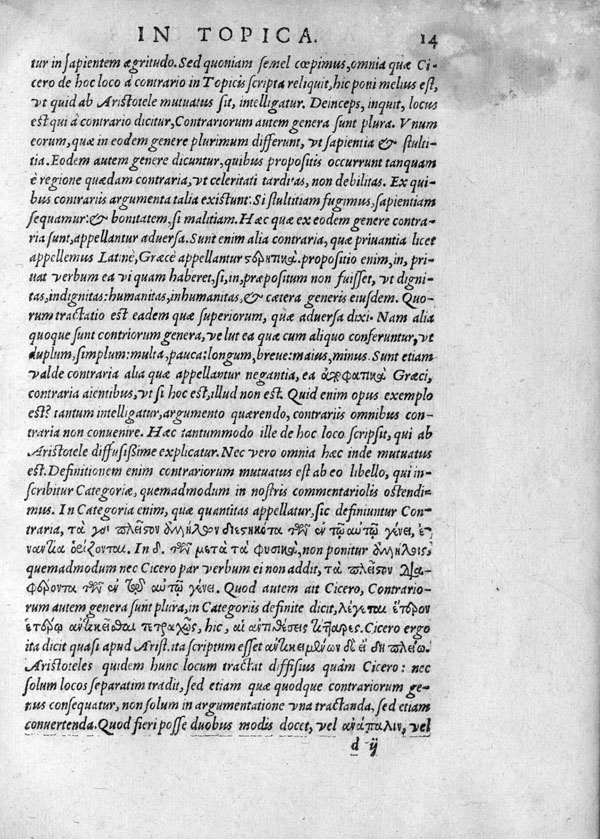 IN TOPICA. 14
tur in sapientem ægritudo. Sed quoniam semel cœpimus, omnia quæ Ci-
cero de hoc loco à contrario in Topicis scripta reliquit, hic poni melius est,
vt quid ab Aristotele mutuatus sit, intelligatur. Deinceps, inquit, locus
est qui à contrario dicitur, Contrariorum autem genera sunt plura. Vnum
eorum, quæ in eodem genere plurimum differunt, vt sapientia & stulti-
tia. Eodem autem genere dicuntur, quibus propositis occurrunt tanquam
è regione quædam contraria, vt celeritati tarditas, non debilitas. Ex qui-
bus contrariis argumenta talia existunt: Si stultitiam fugimus, sapientiam
sequamur: & bonitatem, si malitiam. Hæc quæ ex eodem genere contra-
ria sunt, appellantur aduersa. Sunt enim alia contraria, quæ priuantia licet
appellemus Latinè, Græcè appellantur propositio enim, in, pri-
uat verbum ea vi quam haberet, si, in, præpositum non fuisset, vt dignit-
tas, indignitas: humanitas, inhumanitas, & cætera generis eiusdem. Quo-
rum tractatio est eadem quæ superiorum, quæ aduersa dixi. Nam alia
quoque sunt contriorum genera, velut ea quæ cum aliquo conferuntur, vt
duplum, simplum: multa, pauca: longum, breue: maius, minus. Sunt etiam
valde contraria alia quæ appellantur negantia, ea Græci,
contraria aientibus, vt si hoc est, illud non est. Quid enim opus exemplo
est? tantum intelligatur, argumento quærendo, contrariis omnibus con-
traria non conuenire. Hæc tantummodo ille de hoc loco scripsit, qui ab
Aristotele diffusissime explicatur. Nec vero omnia hæc inde mutuatus
est. Definitionem enim contrariorum mutuatus est ab eo libello, qui in-
scribitur Categoriæ, quemadmodum in nostris commentariolis ostendi-
mus. In Categoria enim, quæ quantitas appellatur, sic definiuntur Con-
traria, τὰ πλεῖστον ἀλλήλων διεστηκότα τῶν ἐν τῷ αὐτῷ γένει, ἐ-
ναντία ὁρίζονται. In δ. τῶν μετὰ τὰ φυσικὰ, non ponitur ἀλλήλοις,
quemadmodum nec Cicero par verbum ei non addit, τὰ πλεῖστον δια-
φέροντα τῶν ἐν αὐτῷ γένει. Quod autem ait Cicero, Contrario-
rum autem genera sunt plura, in Categoriis definite dicit, λέγεται ἕτερον
ἑτέρῳ ἀντικεῖσθαι τετραχῶς, hic, αἱ ἀντιθέσεις τέτταρες. Cicero ergo
ita dicit quasi apud Arist. ita scriptum esset ἀντικειμένων δὲ εἴδη πλείω.
Aristoteles quidem hunc locum tractat diffisius quàm Cicero: nec
solum locos separatim tradit, sed etiam quæ quodque contrariorum ge-
nus consequatur, non solum in argumentatione vna tractanda, sed etiam
conuertenda. Quod fieri posse duobus modis docet, vel ἀνάπαλιν, vel
d ij